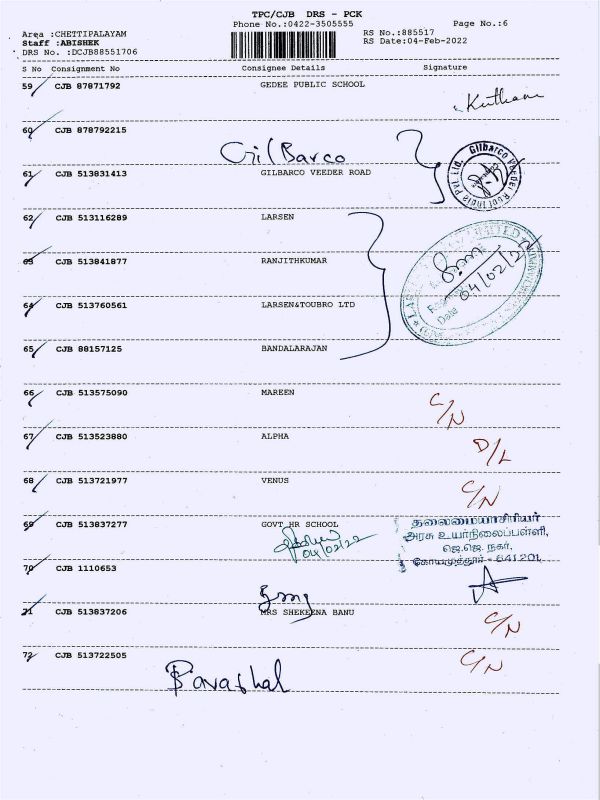 TPC/CJB DRS - PCK
Phone No.:0422-3505555
Page No.:6
Area :CHETTIPALAYAM
RS No.:885517
Staff :ABISHEK
RS Date:04-Feb-2022
DRS No. :DCJB88551706
S No Consignment No Consignee Details Signature
59 CJB 87871792 GEDEE PUBLIC SCHOOL
60 CJB 878792215
GilBarco
61 CJB 513831413 GILBARCO VEEDER ROAD
Gilbarco Veeder Root India Pvt. Ltd.
62 CJB 513116289 LARSEN
63 CJB 513841877 RANJITHKUMAR
04/02/22
Date
64 CJB 513760561 LARSEN&TOUBRO LTD
65 CJB 88157125 BANDALARAJAN
66 CJB 513575090 MAREEN C/N
67 CJB 513523880 ALPHA D/L
68 CJB 513721977 VENUS C/N
69 CJB 513837277 GOVT HR SCHOOL
04/02/22
தலைமையாசிரியர்
அரசு உயர்நிலைப்பள்ளி,
ஜெ.ஜெ. நகர்,
கோயமுத்தூர் - 641 201.
70 CJB 1110653
71 CJB 513837206 MRS SHEKEENA BANU C/N
72 CJB 513722505 C/N